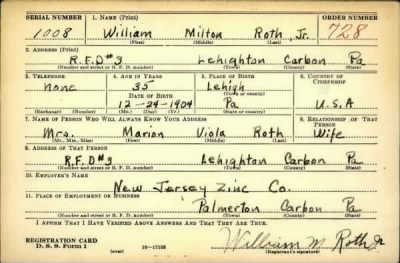 SERIAL NUMBER 1. NAME (Print) ORDER NUMBER
1008 William Milton Roth, Jr. 728
(First) (Middle) (Last)
2. ADDRESS (Print)
R.F.D#3 Lehighton Carbon Pa
(Number and street or R. F. D. number) (Town) (County) (State)
3. TELEPHONE 4. AGE IN YEARS 5. PLACE OF BIRTH 6. COUNTRY OF CITIZENSHIP
none 35 Lehigh
DATE OF BIRTH (Town or county)
12-24-1904 Pa U.S.A
(Exchange) (Number) (Mo.) (Day) (Yr.) (State or country)
7. NAME OF PERSON WHO WILL ALWAYS KNOW YOUR ADDRESS 8. RELATIONSHIP OF THAT PERSON
Mrs. Marion Viola Roth Wife
(Mr., Mrs., Miss) (First) (Middle) (Last)
9. ADDRESS OF THAT PERSON
R.F.D#3 Lehighton Carbon Pa
(Number and street or R. F. D. number) (Town) (County) (State)
10. EMPLOYER'S NAME
New Jersey Zinc Co.
11. PLACE OF EMPLOYMENT OR BUSINESS
Palmerton Carbon Pa
(Number and street or R. F. D. number) (Town) (County) (State)
I AFFIRM THAT I HAVE VERIFIED ABOVE ANSWERS AND THAT THEY ARE TRUE.
REGISTRATION CARD
D. S. S. Form 1 (over) 16-17105 William M. Roth Jr
(Registrant's signature)